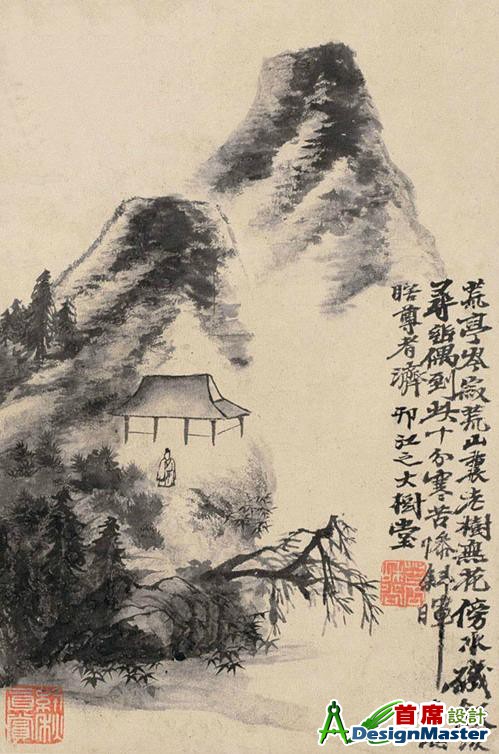 荒亭岑寂荒山裏老樹無花傍水磯
偶到此十分寒苦慘斜暉
瞎尊者濟 邗江之大樹堂
首席設計
ADesignMaster